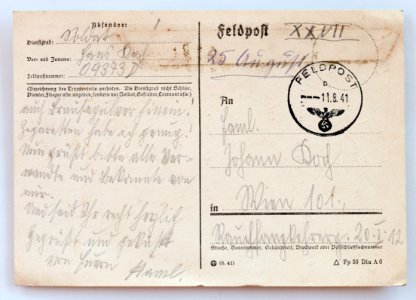 Absender:
Dienstgrad: Soldat
Vor- und Zuname: Hans Koch
Feldpostnummer: 09373 D
(Bezeichnung des Truppenteils verboten. Als Dienstgrad nicht Schütze,
Pionier, Flieger usw. angeben, sondern nur: Soldat, Gefreiter, Leutnant usw.)
auch
haben ich genug!
Nun grüßt bitte alle Ver-
wandte und Bekannte von
mir.
Und seid Ihr recht herzlich
Gegrüßt und geküßt
von Eurem
Feldpost XXVII
25 August
FELDPOST
a
11.8.41
An
Faml.
Johann Koch
in Wien 101.
20 I/12
Straße, Hausnummer, Gebäudeteil, Stockwerk oder Postschließfachnummer
(6. 41)
Fp 53 Din A 6